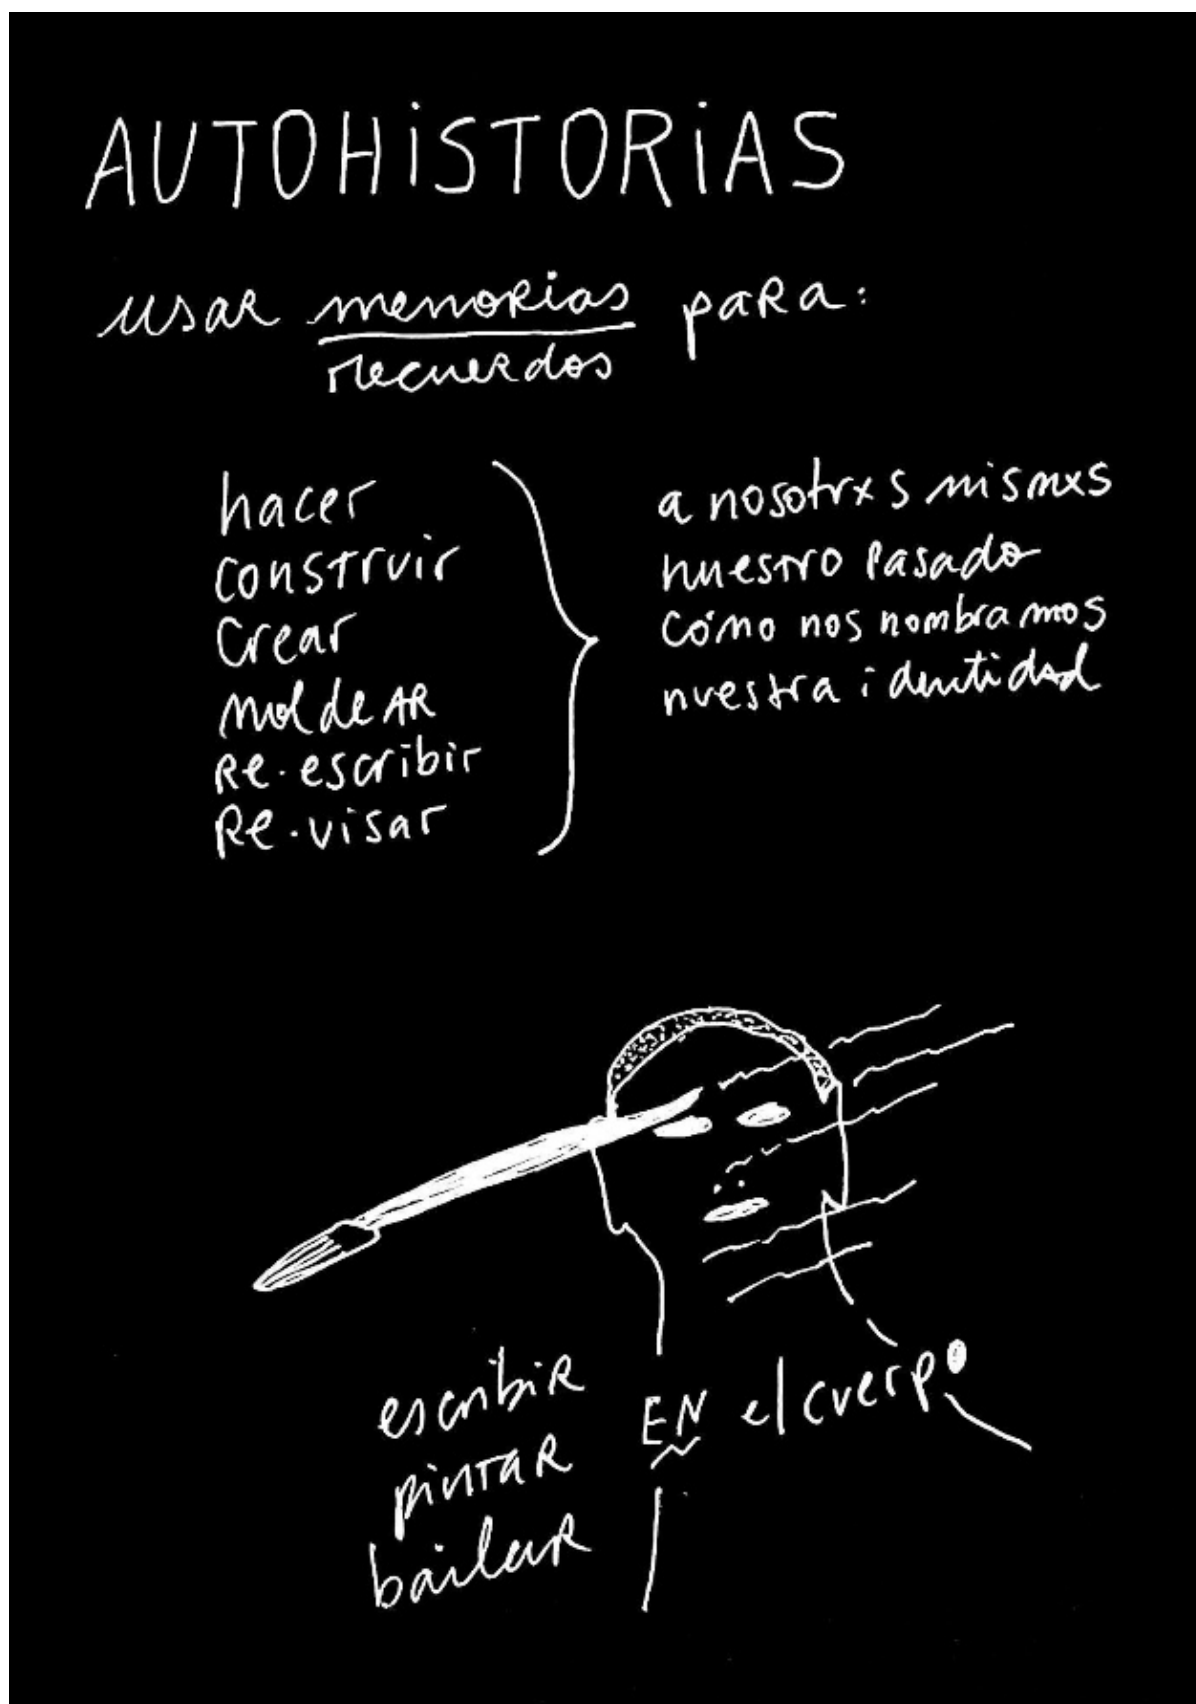 AUTOHiSTORiAS
usar memorias para:
recuerdos
hacer
construir
crear
moldeAR
Re-escribir
Re-visar
a nosotrxs mismxs
nuestro pasado
cómo nos nombramos
nuestra identidad
escribir
pintar
bailar
EN el cuerpo